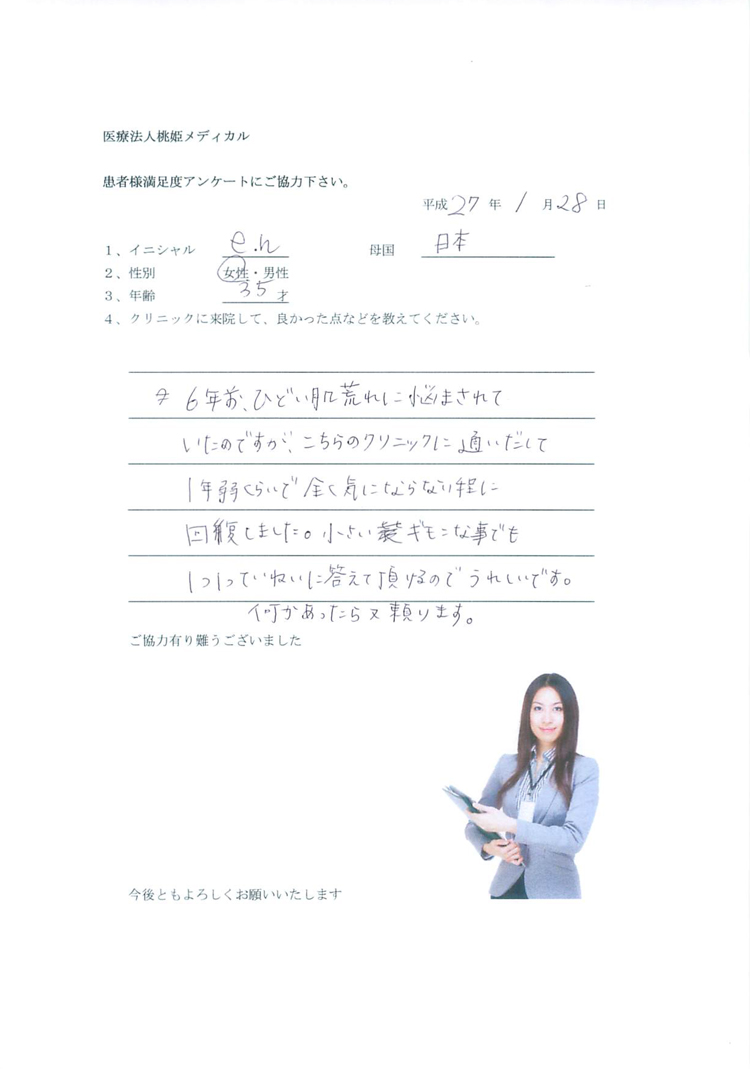 医療法人桃姫メディカル
患者様満足度アンケートにご協力下さい。
平成 27 年 1 月 28 日
1、イニシャル e.n 母国 日本
2、性別 女性・男性
3、年齢 35 才
4、クリニックに来院して、良かった点などを教えてください。
6年前、ひどい肌荒れに悩まされて
いたのですが、こちらのクリニックに通いだして
1年弱くらいで全く気にならない程に
回復しました。小さいギモンな事でも
1つ1つていねいに答えて頂けるのでうれしいです。
何かあったら又頼ります。
ご協力有り難うございました
今後ともよろしくお願いいたします